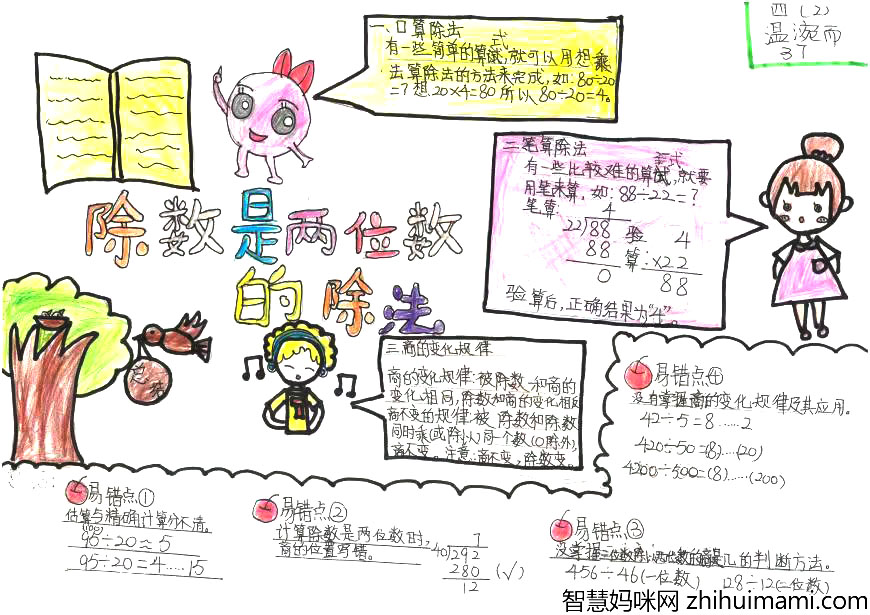 四(2)
温涴而
37
一、口算除法
有一些简单的算式,就可以用想乘
法算除法的方法来完成,如:80÷20
=?想20×4=80所以80÷20=4。
二笔算除法
有一些比较难的算式,就要
用笔来算,如:88÷22=?
笔算:
4
22)88
88
0
验算:
4
×22
88
验算后,正确结果为"4"。
除数是两位数
的除法
三商的变化规律
商的变化规律:被除数和商的
变化相同,除数和商的变化相反
商不变的规律:被除数和除数
同时乘(或除以)同一个数(0除外),
商不变。注意:商不变,除数变。
总结
易错点④
没掌握商的变化规律及其应用。
42÷5=8……2
420÷50=(8)……(20)
4200÷500=(8)……(200)
易错点①
估算与精确计算分不清。
(100)
95÷20≈5
95÷20=4……15
易错点②
计算除数是两位数时,
商的位置写错。
7
40)292
280 (√)
12
易错点③
没掌握三位数除以两位数的商是几的判断方法。
456÷46(一位数) 128÷12(二位数)
智慧妈咪网 zhihuimami.com